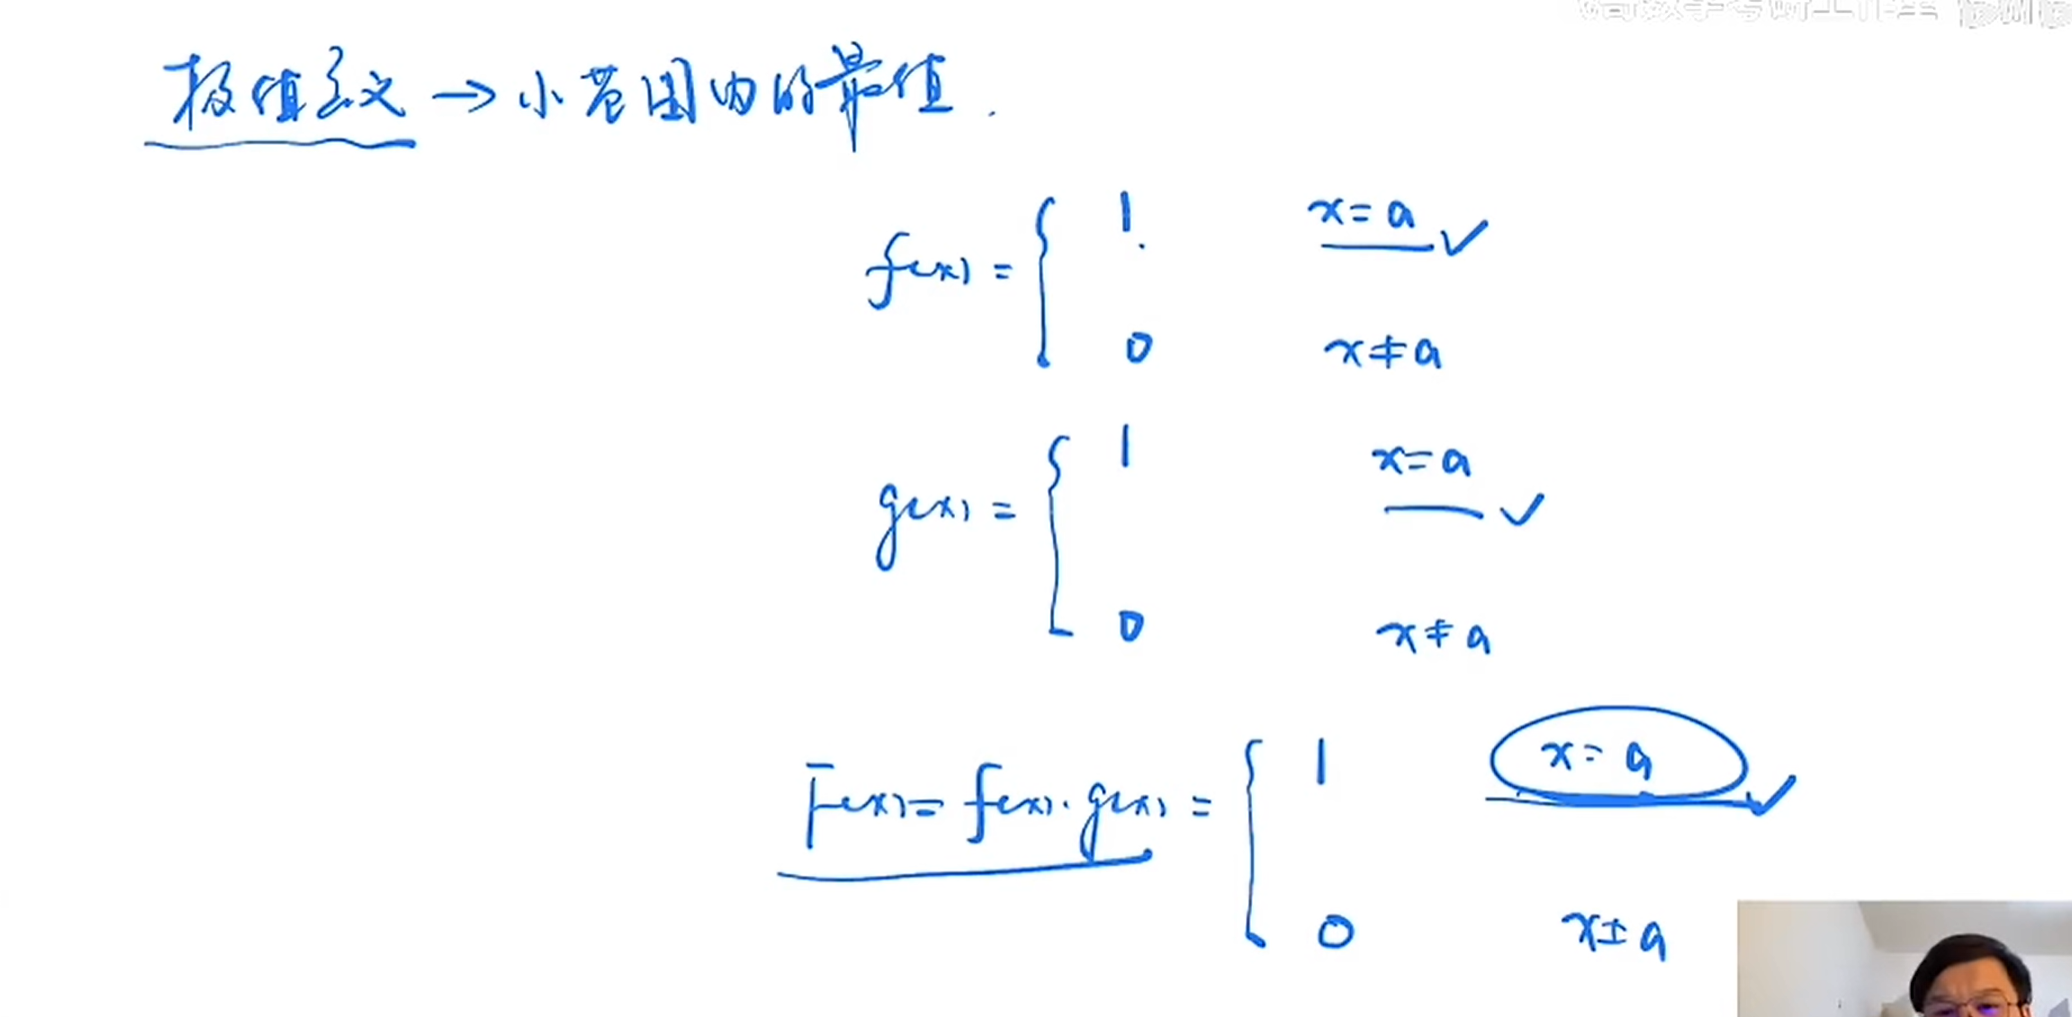 极值定义 → 小范围内的最值.
f(x) = { 1. x = a ✓
0 x ≠ a
g(x) = { 1 x = a ✓
0 x ≠ a
F(x) = f(x)·g(x) = { 1 x = a ✓
0 x ≠ a